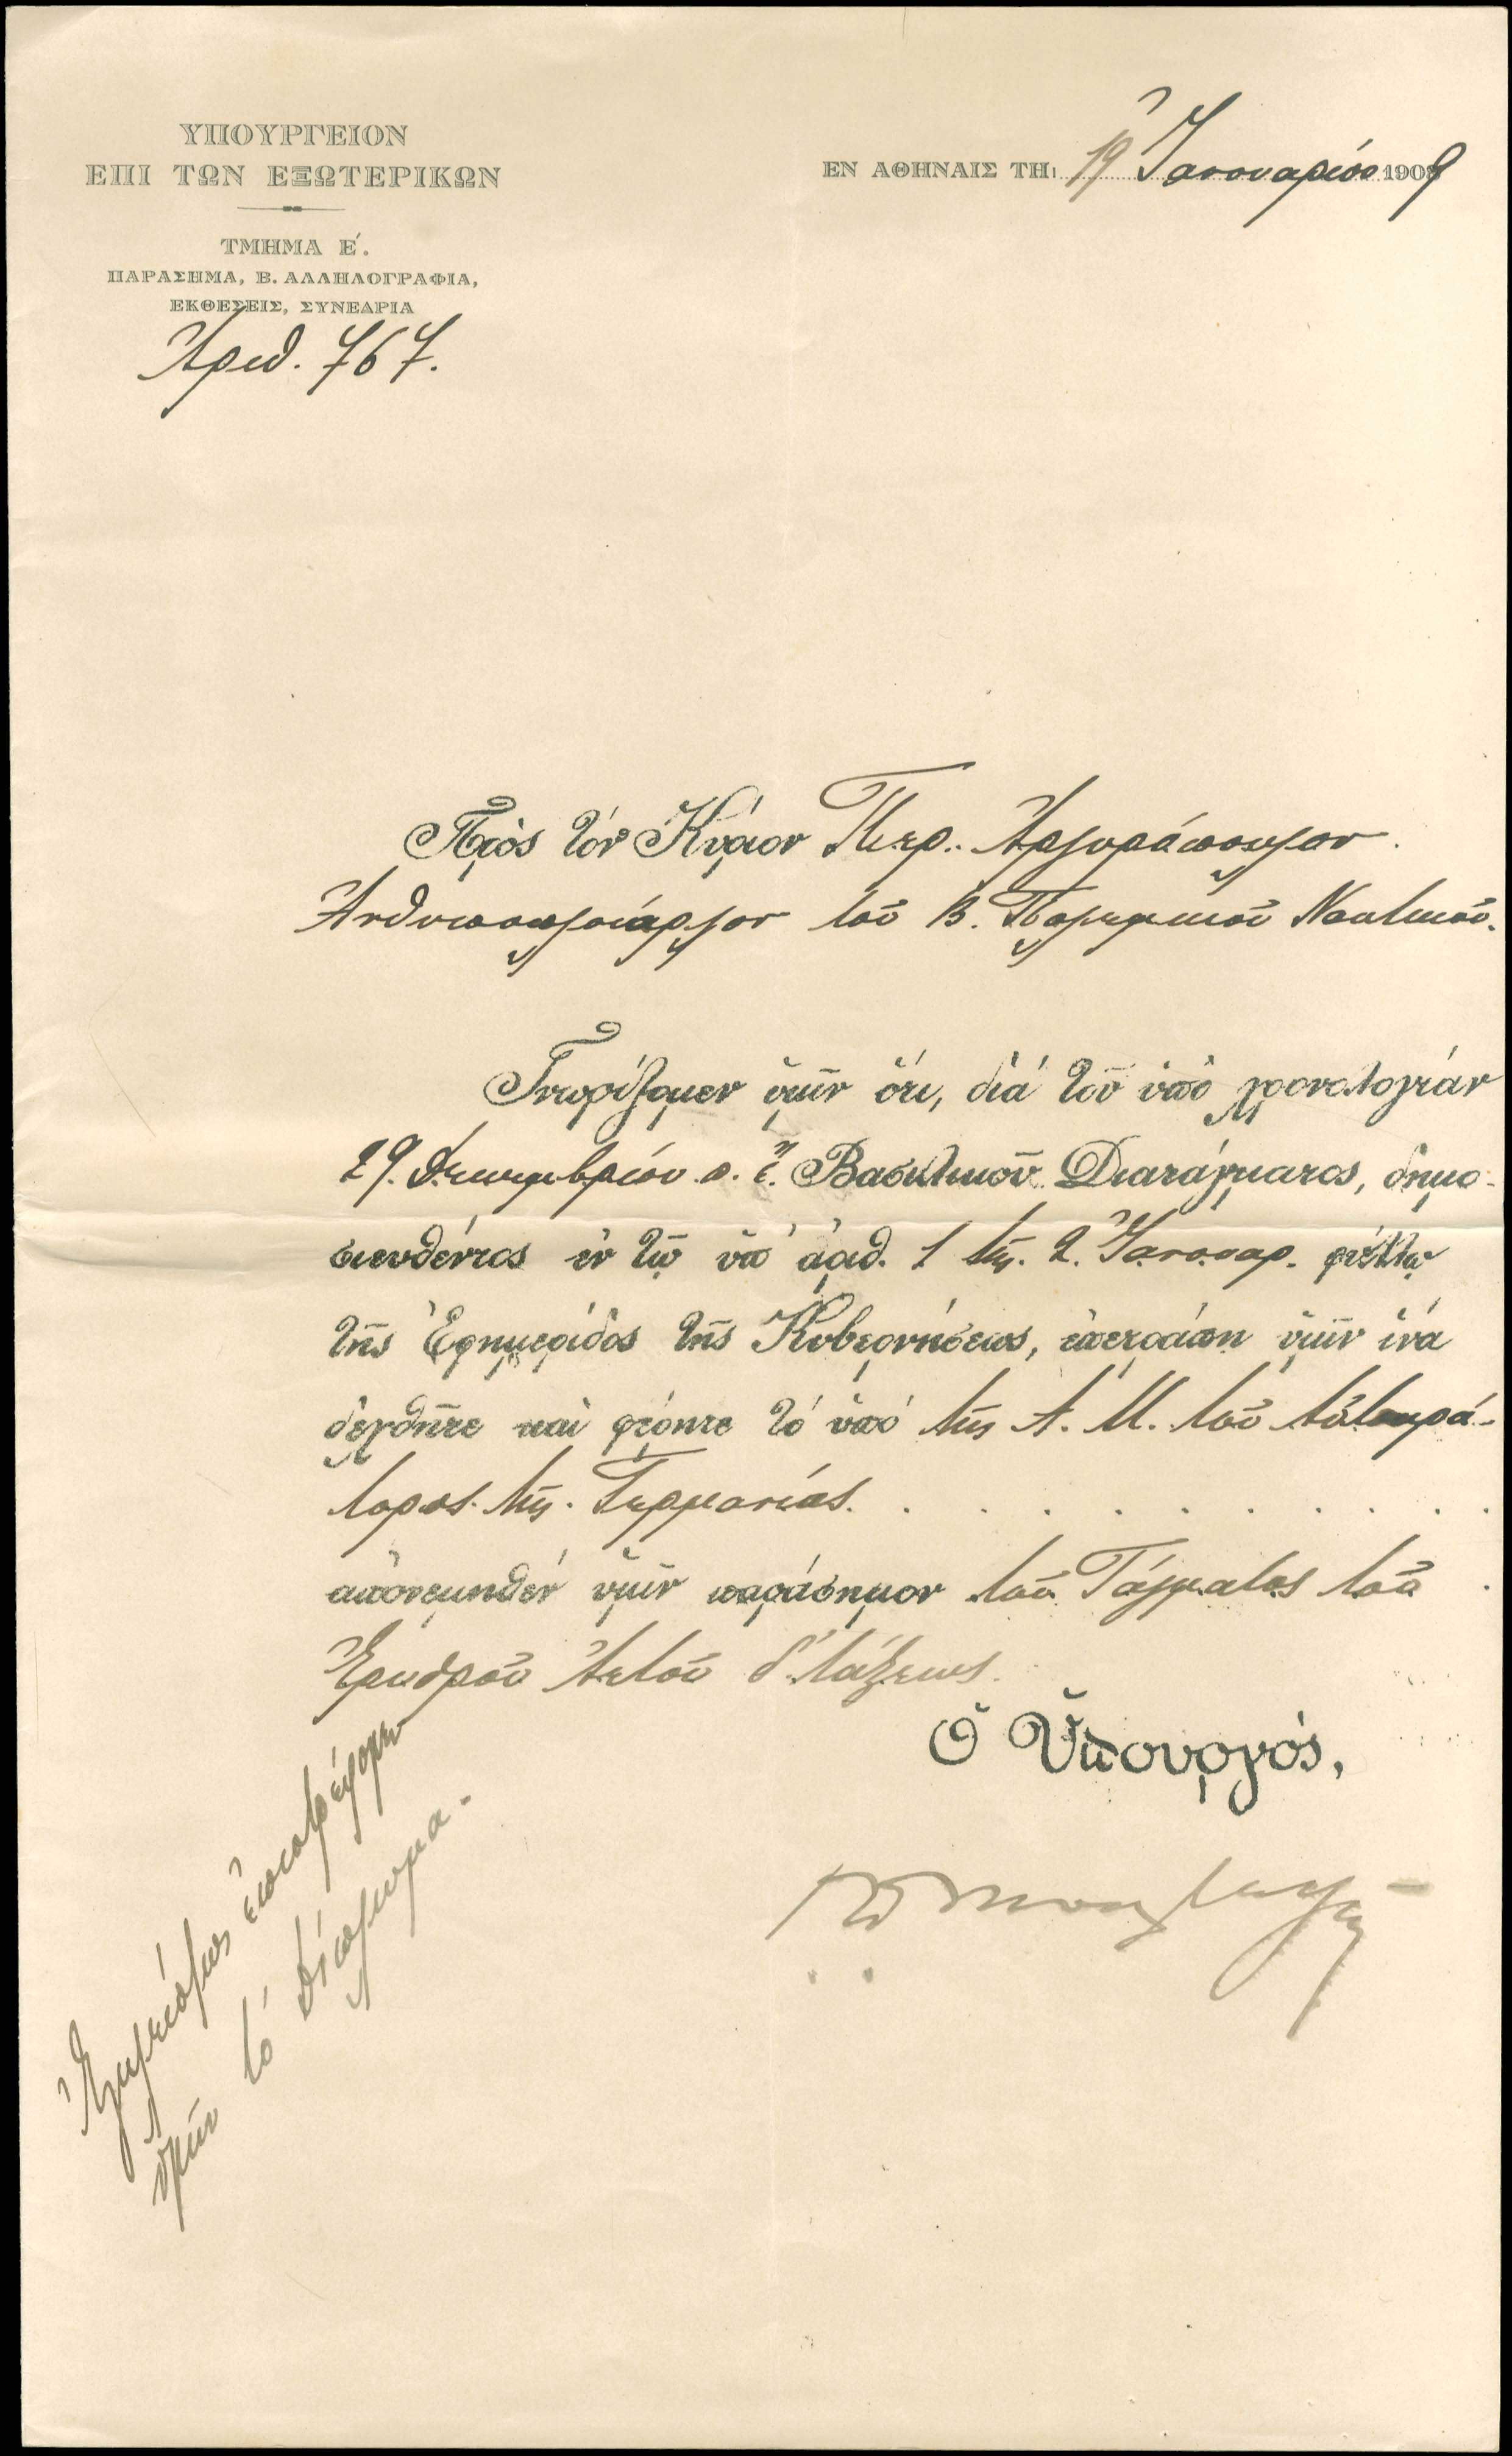 ΥΠΟΥΡΓΕΙΟΝ
ΕΠΙ ΤΩΝ ΕΞΩΤΕΡΙΚΩΝ
ΤΜΗΜΑ Ε΄.
ΠΑΡΑΣΗΜΑ, Β. ΑΛΛΗΛΟΓΡΑΦΙΑ,
ΕΚΘΕΣΕΙΣ, ΣΥΝΕΔΡΙΑ
Ἀριθ. 767.
ΕΝ ΑΘΗΝΑΙΣ ΤΗι 19 Ἰανουαρίου 1909
Πρὸς τόν Κύριον Περ. Ἀργυρόπουλον
Ἀνθυποπλοίαρχον τοῦ Β. Πολεμικοῦ Ναυτικοῦ.
Γνωρίζομεν ὑμῖν ὅτι, διά τοῦ ὑπό χρονολογίαν
29. Δεκεμβρίου π. ἔ. Βασιλικοῦ Διατάγματος, δημο-
σιευθέντος ἐν τῷ ὑπ' ἀριθ. 1 τῆς 2 Ἰανουαρ. φύλλῳ
τῆς Ἐφημερίδος τῆς Κυβερνήσεως, ἐπετράπη ὑμῖν ἵνα
δεχθῆτε καὶ φέρητε τό ὑπό τῆς Α. Μ. τοῦ Αὐτοκρά-
τορος τῆς Γερμανίας.
ἀπονεμηθέν ὑμῖν παράσημον τοῦ Τάγματος τοῦ
Ἐρυθροῦ Ἀετοῦ δ' τάξεως.
Ὁ Ὑπουργός,
Ἐγκλείστως ἐπιστρέφομεν
ὑμῖν τό δίπλωμα.